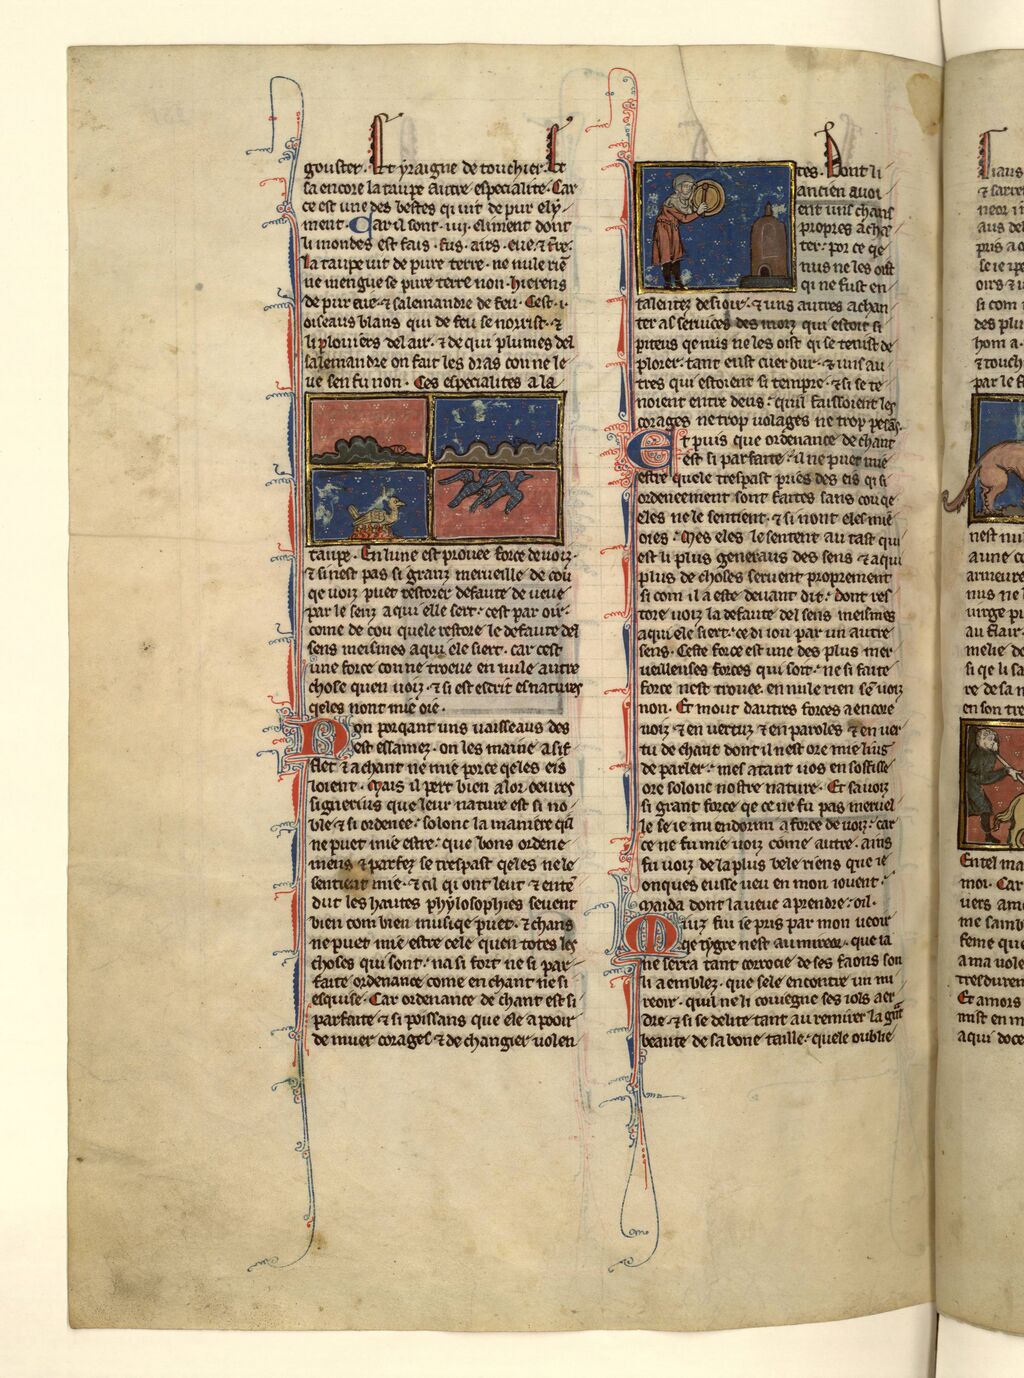 gouster. Et yraigne de touchier. Et
sa encore la taupe autre especialite. Car
ce est une des bestes qi vit de pur ely-
ment. Car il sont .iiii. eliment dont
li mondes est fais. fus. airs. eue. & t're.
La taupe vit de pure terre. ne nule rie͂
ne mengue se pure terre non. hierens
de pur eue. & salemandre de feu. Cest .i.
oiseaus blans qui de feu se norrist. &
li ploiuiers del air. & de qui plumes del
salemandre on fait les dras con ne le-
ue sen fu non. Ces especialites a la
taupe. En lune est prouee force de uoiz.
& si nest pas si granz merueille de cou
qe uoiz puet restorer defaute de ueue
par le senz a qui elle sert. cest par oir.
come de cou quele restore le defaute del
sens meismes a qui ele siert. car cest
une force con ne trueue en nule autre
chose quen uoiz. & si est escrit es natures
qeles nont mie oie.
Don porqant uns uaisseaus des
est essamez. on les maine a sif-
flet & a chant ne mie porce qe les eis
loient. Mais il pert bien a lor oeures
signerius que leur nature est si no-
ble & si ordenee. solonc la maniere q͂l
ne puet mie estre. que bons ordene-
mens & parfez se trespast qeles ne le
sentient mie. & cil qi ont leut & ente͂-
dut les hautes phylosophies seuent
bien com bien musiqe puet. & chans
ne puet mie estre cele quen totes les
choses qui sont. na si fort ne si par-
faite ordenance come en chant ne si
esquise. Car ordenance de chant est si
parfaite & si poissans que ele a pooir
de muer corages & de changier uolen-
tes. Dont li
ancien auoi-
ent uns chans
propres a cha͂-
ter. por ce qe
nus ne les oist
qi ne fust en-
talentez desioir. & uns autres a chan-
ter as seruices des morz qui estoit si
piteus qe nus ne les oist qi se tenist de
plorer. tant eust cuer dur. & uns au-
tres qui estoient si tempre. & si se te-
noient entre deus. quil faissoient les
corages ne trop uolages ne trop pesa͂s.
Et puis que ordenance de chant
est si parfaite. il ne puet mie
estre quele trespast pries des eis qi si
ordeneement sont faites sans cou qe
eles ne le sentient. & si nont eles mie
oies. Mes eles le sentent au tast qui
est li plus generaus des sens & a qui
plus de choses seruent proprement
si com il a este deuant dit. dont res-
tore uoiz la defaute del sens meismes
a qui ele siert. ce di iou par un autre
sens. Ceste force est une des plus mer-
ueilleuses forces qui soit. ne si faite
force nest trouee en nule rien se͂ uoiz
non. Et mout dautres forces a encore
uoiz & en uertuz & en paroles & en uer-
tu de chant dont il nest ore mie liug
de parler. mes atant uos en soffisse
ore solonc nostre nature. Et sa uoiz
si grant force qe ce ne fu pas meruel-
le se ie mi endormi a force de uoiz. car
ce ne fu mie uoiz come autre. ains
fu uoiz de la plus bele riens que ie
onques eusse ueu en mon iouent.
Maida dont la ueue a prendre. oil.
Miuz fui ie pris par mon ueoir
qe tygre nest au mireor. que ia
ne serra tant corrocie de ses faons son
li a emblez. que sele encontre un mi-
reoir. quil ne li couiegne ses iols aer-
dre. & si se delite tant au remirer la g͂nt
beaute de sa bone taille. quele oublie